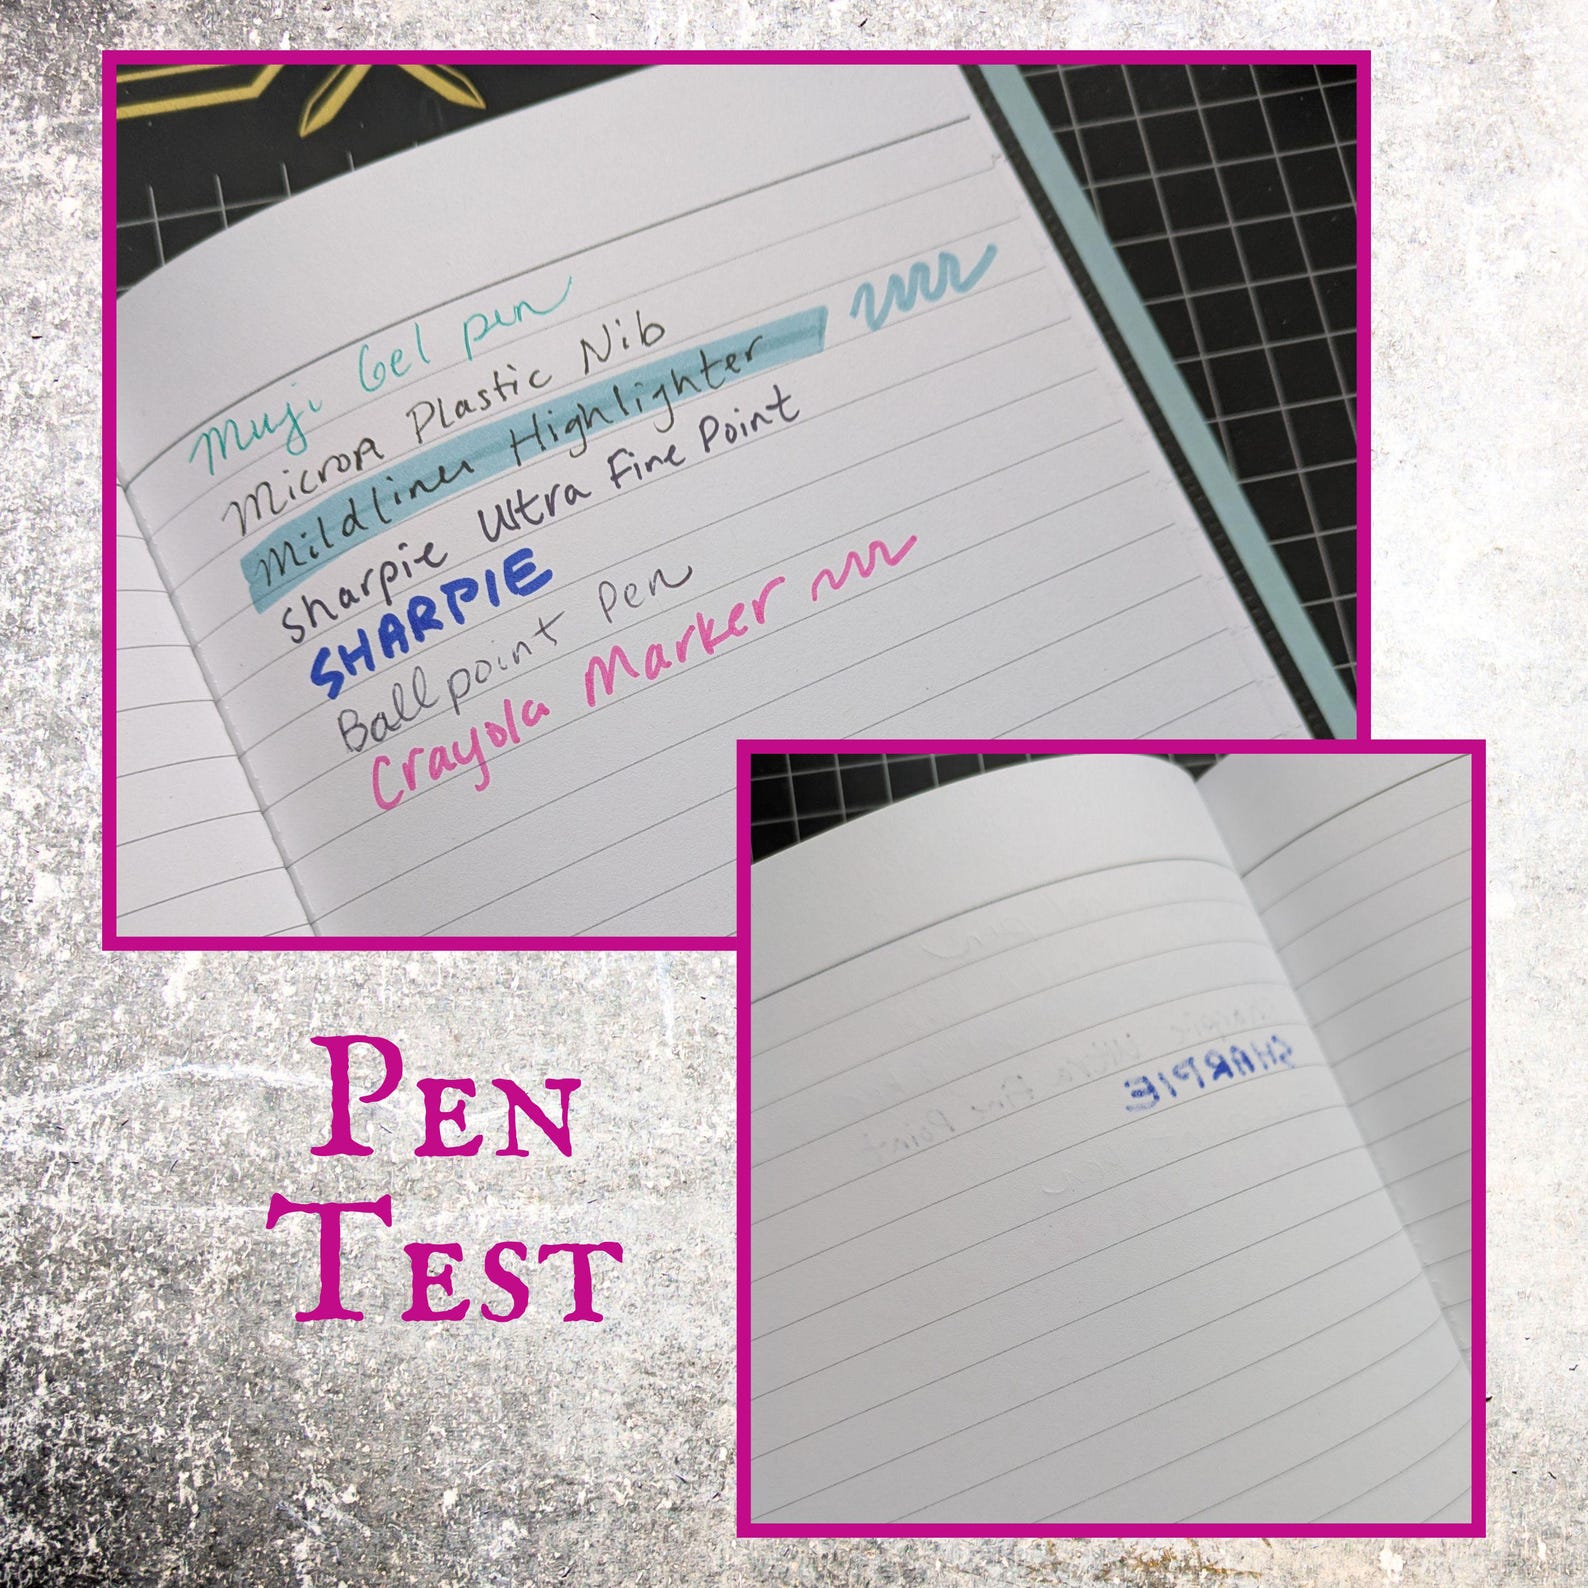 Muji Gel pen
Micron Plastic Nib
Mildliner Highlighter
Sharpie Ultra Fine Point
SHARPIE
Ballpoint Pen
Crayola Marker
Pen
Sharpie Ultra Fine Point
SHARPIE
PEN
TEST